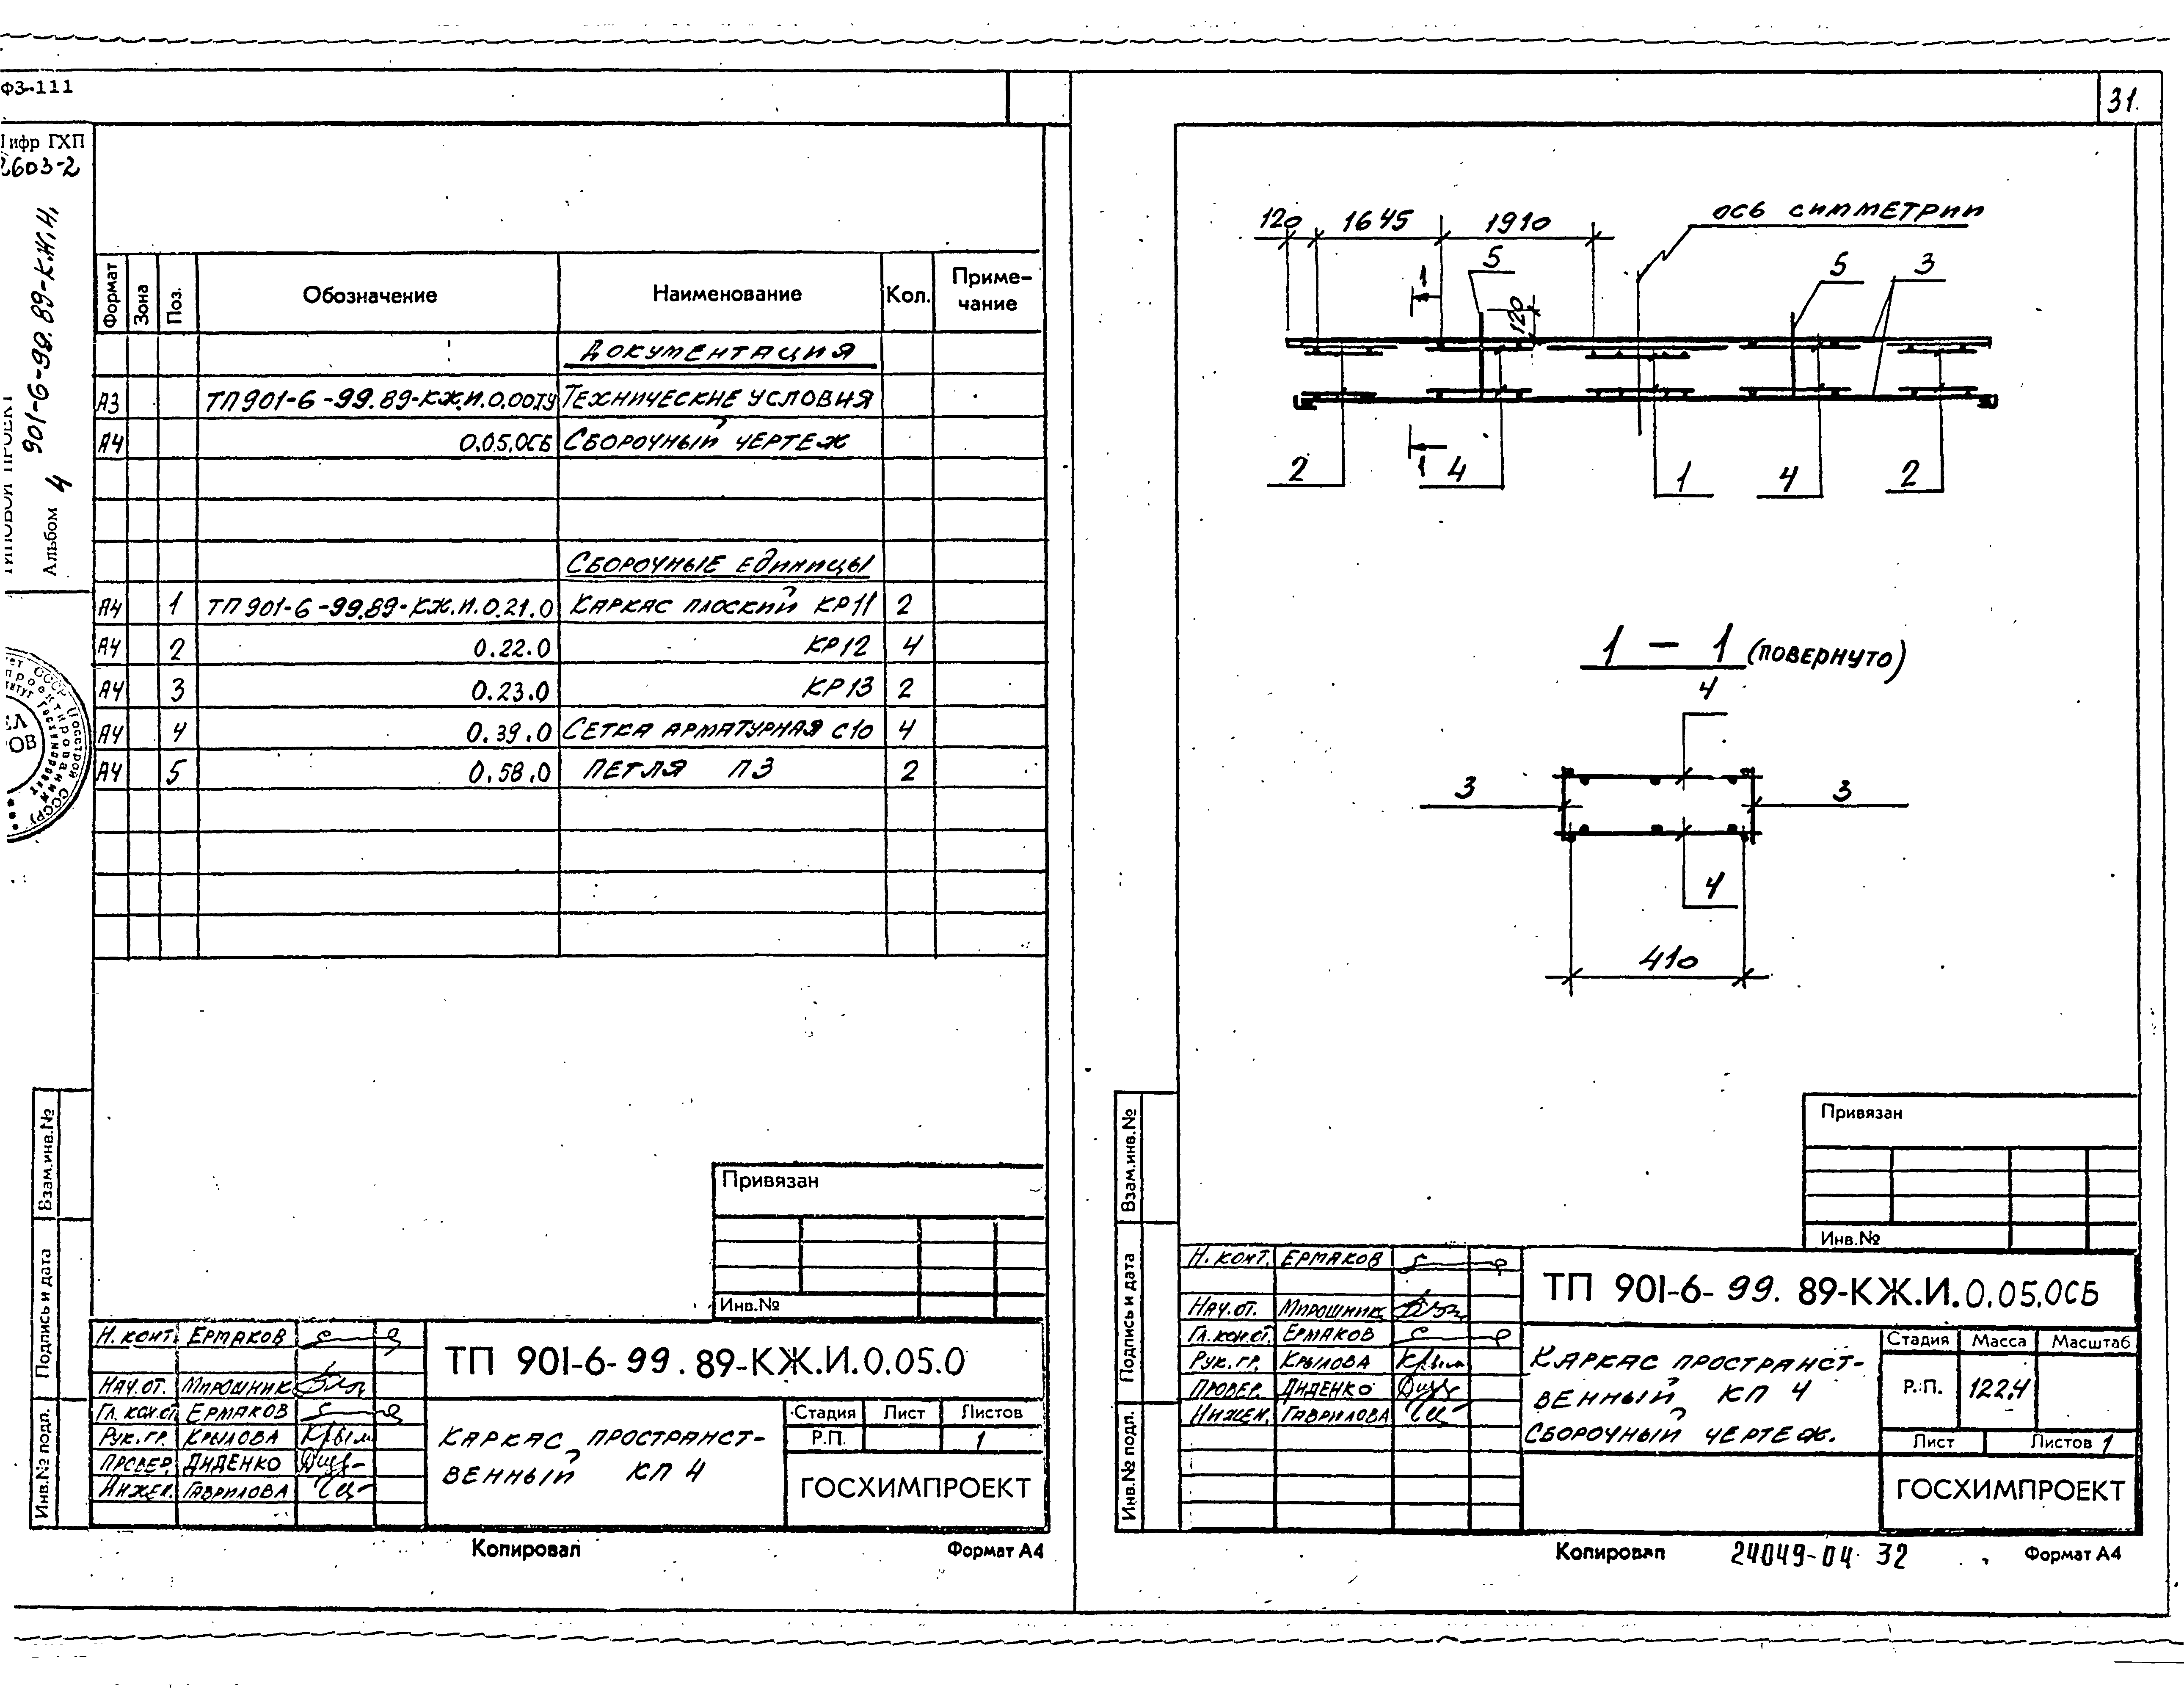 ФЗ-111
31.
ифр ГХП
2603-2
901-6-99.89-КЖ.И.
Альбом 4
Формат Зона Поз. Обозначение Наименование Кол. Приме-
чание
Документация
А3 ТП901-6-99.89-КЖ.И.0.00ТУ Технические условия
А4 0.05.0СБ Сборочный чертеж
Сборочные единицы
А4 1 ТП901-6-99.89-КЖ.И.0.21.0 Каркас плоский КР11 2
А4 2 0.22.0 КР12 4
А4 3 0.23.0 КР13 2
А4 4 0.39.0 Сетка арматурная С10 4
А4 5 0.58.0 Петля П3 2
Взам.инв.№
Подпись и дата
Инв.№ подл.
Привязан
Инв.№
Н. конт. Ермаков
Нач.от. Мирошник
Гл. кон.ст. Ермаков
Рук.гр. Крылова
Провер. Диденко
Инжен. Гаврилова
ТП 901-6-99.89-КЖ.И.0.05.0
Каркас пространст-
венный КП 4
Стадия Лист Листов
Р.П. 1
ГОСХИМПРОЕКТ
Копировал Формат А4
120 1645 1910 ось симметрии
1 5 120 5 3
2 1 4 1 4 2
1 - 1 (повернуто)
4
3 3
4
410
Взам.инв.№
Подпись и дата
Инв.№ подл.
Привязан
Инв.№
Н. конт. Ермаков
Нач.от. Мирошник
Гл.кон.ст. Ермаков
Рук.гр. Крылова
Провер. Диденко
Инжен. Гаврилова
ТП 901-6-99.89-КЖ.И.0.05.0СБ
Каркас пространст-
венный КП 4
Сборочный чертеж.
Стадия Масса Масштаб
Р.П. 122,4
Лист Листов 1
ГОСХИМПРОЕКТ
Копировал 24049-04 32 Формат А4